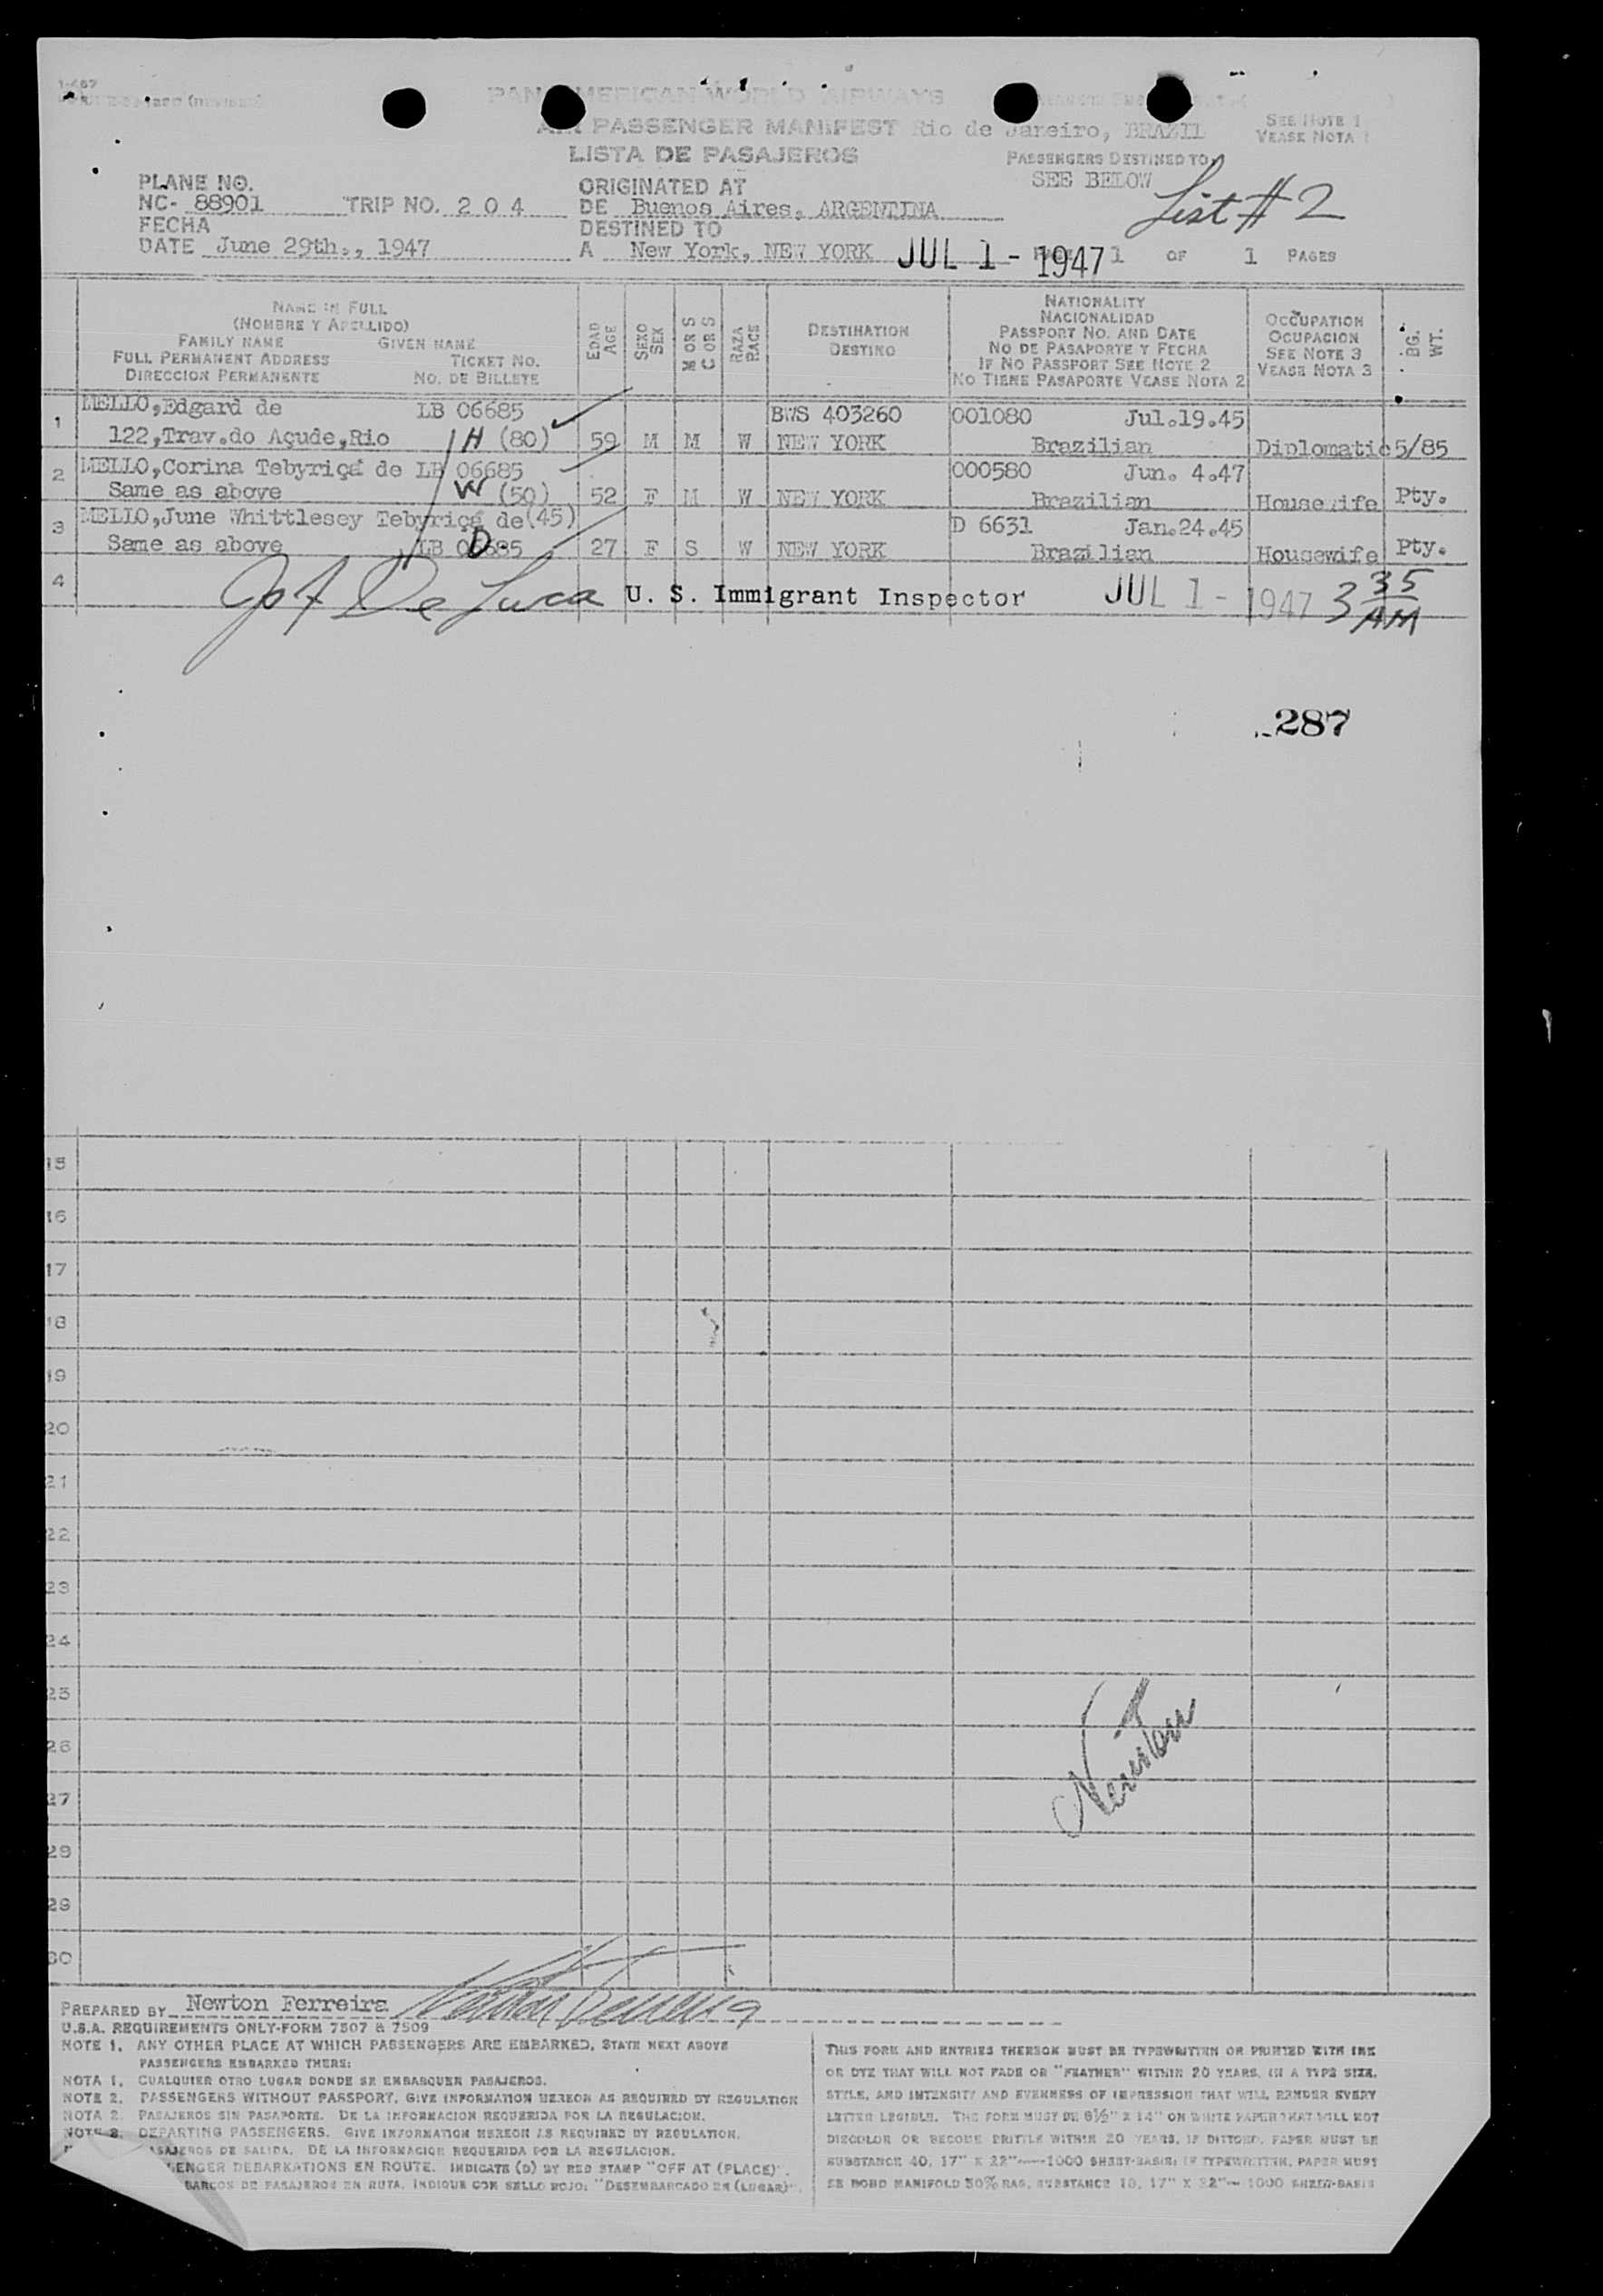 1-487
PAN AMERICAN WORLD AIRWAYS
AIR PASSENGER MANIFEST Rio de Janeiro, BRAZIL
SEE NOTE 1
VEASE NOTA 1
LISTA DE PASAJEROS
PASSENGERS DESTINED TO
SEE BELOW
List # 2
PLANE NO.
NC- 88901 TRIP NO. 2 0 4
ORIGINATED AT
DE Buenos Aires, ARGENTINA
FECHA
DATE June 29th., 1947
DESTINED TO
A New York, NEW YORK JUL 1 - 1947 1 OF 1 PAGES
NAME IN FULL
(NOMBRE Y APELLIDO)
FAMILY NAME GIVEN NAME
FULL PERMANENT ADDRESS TICKET NO.
DIRECCION PERMANENTE NO. DE BILLETE
EDAD
AGE
SEXO
SEX
M OR S
C OR S
RAZA
RACE
DESTINATION
DESTINO
NATIONALITY
NACIONALIDAD
PASSPORT NO. AND DATE
NO DE PASAPORTE Y FECHA
IF NO PASSPORT SEE NOTE 2
NO TIENE PASAPORTE VEASE NOTA 2
OCCUPATION
OCUPACION
SEE NOTE 3
VEASE NOTA 3
BG.
WT.
1 MELLO,Edgard de LB 06685 BWS 403260 001080 Jul.19.45
122,Trav.do Açude,Rio H (80) 59 M M W NEW YORK Brazilian Diplomatic 5/85
2 MELLO,Corina Tebyriçá de LB 06685 000580 Jun. 4.47
Same as above W (50) 52 F M W NEW YORK Brazilian Housewife Pty.
3 MELLO,June Whittlesey Tebyriçá de(45) D 6631 Jan.24.45
Same as above LB 06685 D 27 F S W NEW YORK Brazilian Housewife Pty.
4 Jos A De Luca U. S. Immigrant Inspector JUL 1 - 1947 3 35 AM
287
15
16
17
18
19
20
21
22
23
24
25
26
27
29
29
30
Newton
PREPARED BY Newton Ferreira Newton Ferreira
U.S.A. REQUIREMENTS ONLY-FORM 7507 & 7509
NOTE 1. ANY OTHER PLACE AT WHICH PASSENGERS ARE EMBARKED, STATE NEXT ABOVE
PASSENGERS EMBARKED THERE:
NOTA 1. CUALQUIER OTRO LUGAR DONDE SE EMBARQUEN PASAJEROS.
NOTE 2. PASSENGERS WITHOUT PASSPORT, GIVE INFORMATION HEREON AS REQUIRED BY REGULATION
NOTA 2. PASAJEROS SIN PASAPORTE. DE LA INFORMACION REQUERIDA POR LA REGULACION.
NOTE 3. DEPARTING PASSENGERS. GIVE INFORMATION HEREON AS REQUIRED BY REGULATION.
ASAJEROS DE SALIDA. DE LA INFORMACION REQUERIDA POR LA REGULACION.
ENGER DEBARKATIONS EN ROUTE. INDICATE (D) BY RED STAMP "OFF AT (PLACE)".
BARCOS DE PASAJEROS EN RUTA. INDIQUE CON SELLO ROJO: "DESEMBARCADO EN (LUGAR)".
THIS FORM AND ENTRIES THEREON MUST BE TYPEWRITTEN OR PRINTED WITH INK
OR DYE THAT WILL NOT FADE OR "FEATHER" WITHIN 20 YEARS, IN A TYPE SIZE,
STYLE, AND INTENSITY AND EVENNESS OF IMPRESSION THAT WILL RENDER EVERY
LETTER LEGIBLE. THE FORM MUST BE 8½" X 14" ON WHITE PAPER THAT WILL NOT
DISCOLOR OR BECOME BRITTLE WITHIN 20 YEARS. IF DITTOED, PAPER MUST BE
SUBSTANCE 40, 17" X 22"—1000 SHEET-BASIS; IF TYPEWRITTEN, PAPER MUST
BE BOND MANIFOLD 50% RAG, SUBSTANCE 18, 17" X 22"— 1000 SHEET-BASIS